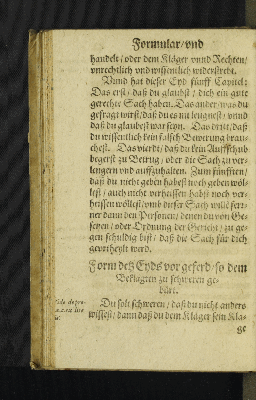 Formular/vnd
handelt/oder dem Kläger vnnd Rechten/
vnrechtlich vnd wissentlich widerstrebt.
Vnnd hat dieser Eyd fünff Capitel:
Das erst/daß du glaubst/dich ein gute
gerechte Sach haben. Das ander/was du
gefragt wirst/daß du es nit leugnest/vnnd
daß du glaubest war seyn. Das dritt/daß
du wissentlich kein falsch Bewerung brau-
chest. Das vierdt/daß du kein Auffschub
begerst zu Betrug/oder die Sach zu ver-
lengern vnd auffzuhalten. Zum fünfften/
daß du nicht geben habest noch geben wöl-
lest/auch nicht verheissen habst noch ver-
heissen wöllest/vmb dieser Sach willē fern-
ner dann den Personen/denen du von Ge-
setzen/oder Ordnung der Gericht/zu ge-
gen schuldig bist/daß die Sach für dich
geurtheylt werd.
Form deß Eyds vor geferd/so dem
Beklagten zu schweren ge-
bürt.
Du solt schweren/daß du nicht anders
wissest/dann daß du dem Kläger sein Kla-
ge